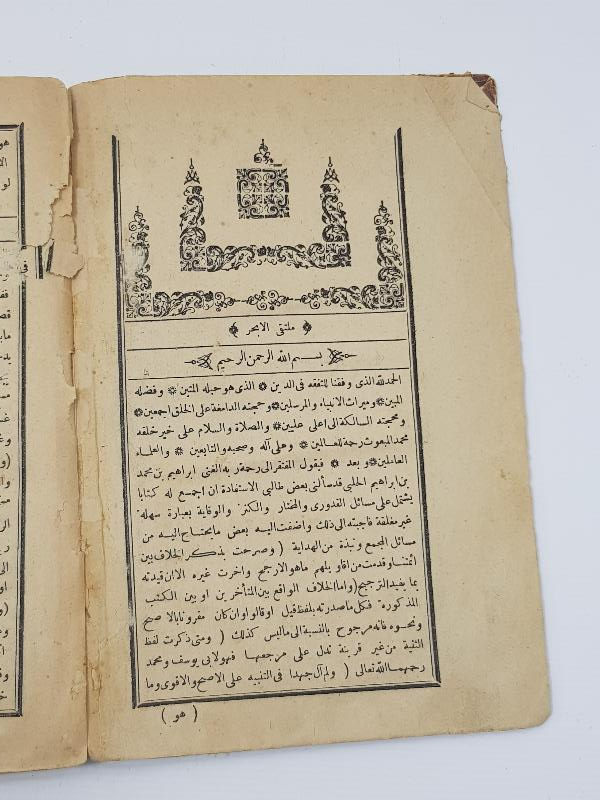 ﴿ ملتقى الابحر ﴾
بسم الله الرحمن الرحيم
الحمد لله الذى وفقنا للتفقه فى الدين * الذى هو حبله المتين * وفضله
المبين * وميراث الانبياء والمرسلين * وحجته الدامغة على الخلق اجمعين *
ومحجته السالكة الى اعلى عليين * والصلاة والسلام على خير خلقه
محمد المبعوث رحمة للعالمين * وعلى آله وصحبه والتابعين * والعلماء
العاملين * وبعد * فيقول المفتقر الى رحمة ربه الغنى ابراهيم بن محمد
بن ابراهيم الحلبى قد سألنى بعض طالبى الاستفادة ان اجمع له كتابا
يشتمل على مسائل القدورى والمختار والكنز والوقاية بعبارة سهلة
غير مغلقة فاجبته الى ذلك واضفت اليه بعض ما يحتاج اليه من
مسائل المجمع ونبذة من الهداية ( وصرحت بذكر الخلاف بين
ائمتنا وقدمت من اقاويلهم ما هو الارجح واخرت غيره الا ان قيدته
بما يفيد الترجيح ( واما الخلاف الواقع بين المتأخرين او بين الكتب
المذكورة فكل ما صدرته بلفظ قيل او قالوا وان كان مقرونا بالاصح
ونحوه فانه مرجوح بالنسبة الى ما ليس كذلك ( ومتى ذكرت لفظ
التثنية من غير قرينة تدل على مرجعها فهو لابى يوسف ومحمد
رحمهما الله تعالى ( ولم آل جهدا فى التنبيه على الاصح والاقوى وما
( هو )